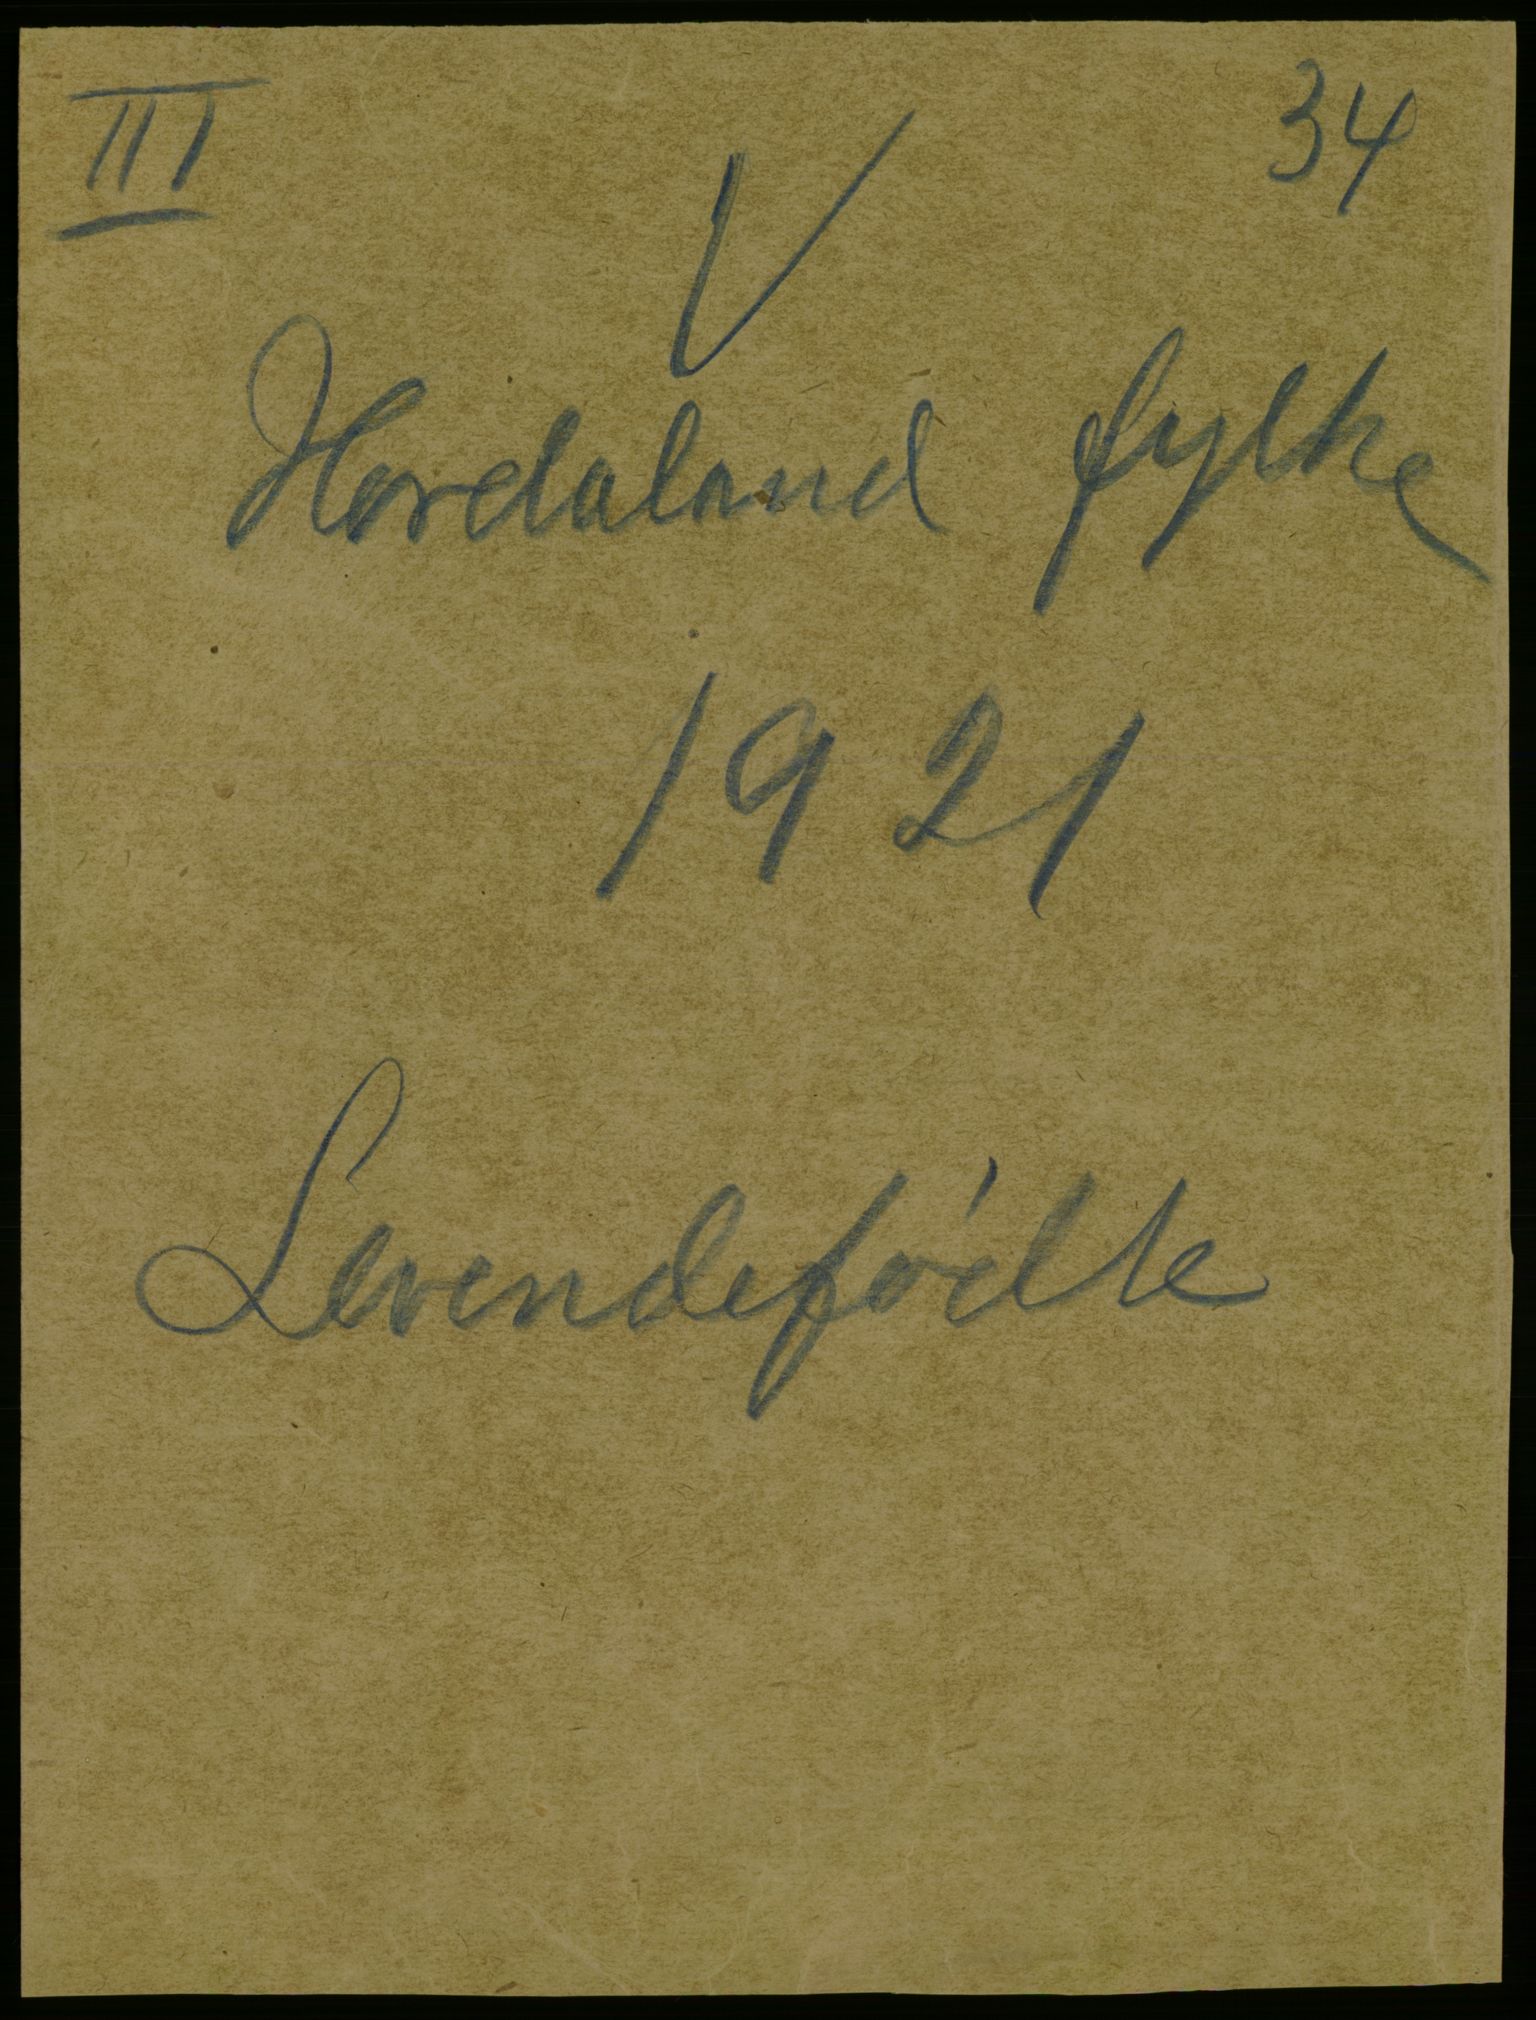 III
34
V
Hordaland fylke
1921
Levendefödte